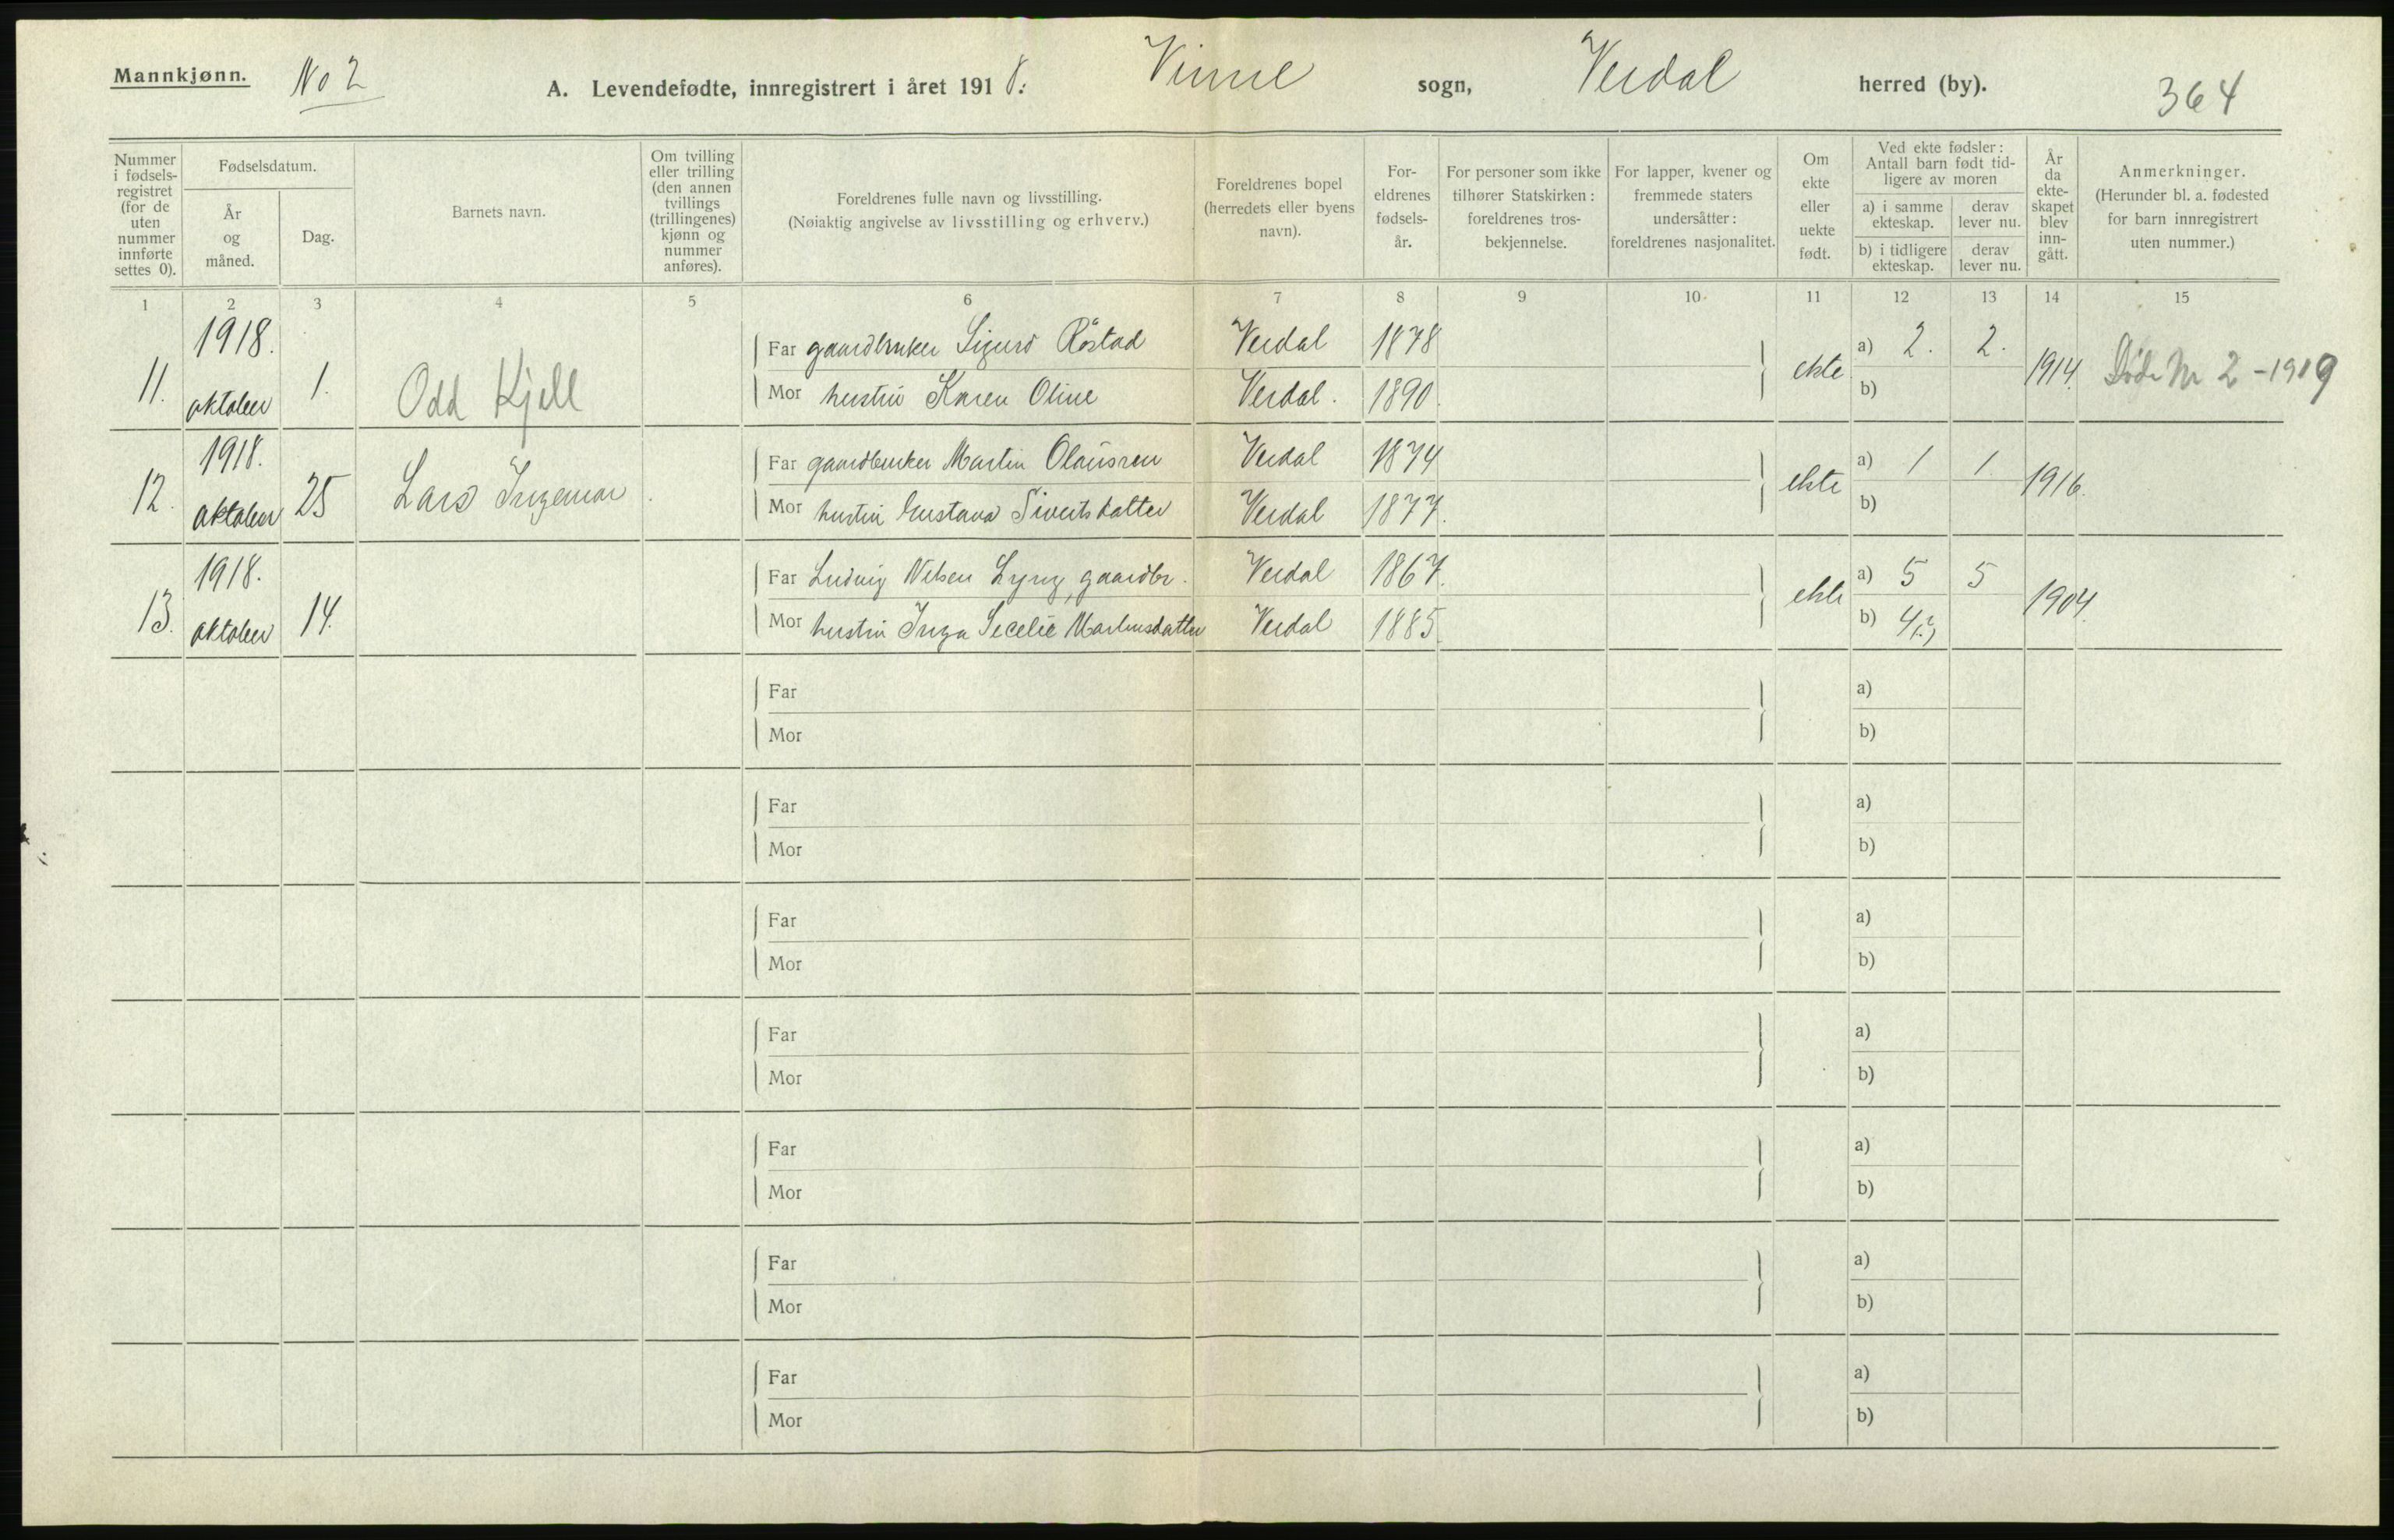 Mannkjønn. No 2 A. Levendefødte, innregistrert i året 1918. Vinne sogn, Verdal herred (by). 364
Nummer i fødselsregistret (for de uten nummer innførte settes 0).
Fødselsdatum.
År og måned.
Dag.
Barnets navn.
Om tvilling eller trilling (den annen tvillings (trillingenes) kjønn og nummer anføres).
Foreldrenes fulle navn og livsstilling.
(Nøiaktig angivelse av livsstilling og erhverv.)
Foreldrenes bopel (herredets eller byens navn).
Foreldrenes fødselsår.
For personer som ikke tilhører Statskirken: foreldrenes trosbekjennelse.
For lapper, kvener og fremmede staters undersåtter: foreldrenes nasjonalitet.
Om ekte eller uekte født.
Ved ekte fødsler: Antall barn født tidligere av moren
a) i samme ekteskap.
derav lever nu.
b) i tidligere ekteskap.
derav lever nu.
År da ekteskapet blev inngått.
Anmerkninger.
(Herunder bl. a. fødested for barn innregistrert uten nummer.)
1 2 3 4 5 6 7 8 9 10 11 12 13 14 15
11. 1918. oktober 1. Odd Kjell
Far gaardbruker Sigurd Røstad Verdal 1878 ekte a) 2. 2. 1914. Døde Nr 2 - 1919
Mor hustru Karen Oline Verdal. 1890. b)
12. 1918. oktober 25 Lars Ingemar
Far gaardbruker Martin Olausen Verdal 1874 ekte a) 1 1. 1916.
Mor hustru Gustava Sivertsdatter Verdal 1877. b)
13. 1918. oktober 14.
Far Ludvig Nelsen Lyng, gaardbr. Verdal 1867. ekte a) 5 5 1904.
Mor hustru Inga Secelie Martinsdatter Verdal 1885. b) 4(?)
Far a)
Mor b)
Far a)
Mor b)
Far a)
Mor b)
Far a)
Mor b)
Far a)
Mor b)
Far a)
Mor b)
Far a)
Mor b)